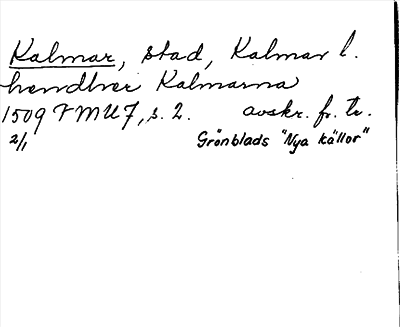 Kalmar, stad, Kalmar l.
hemdher Kalmarna
1509 VMU7, s. 2. avskr. fr. tr.
2/1 Grönblads "Nya källor"